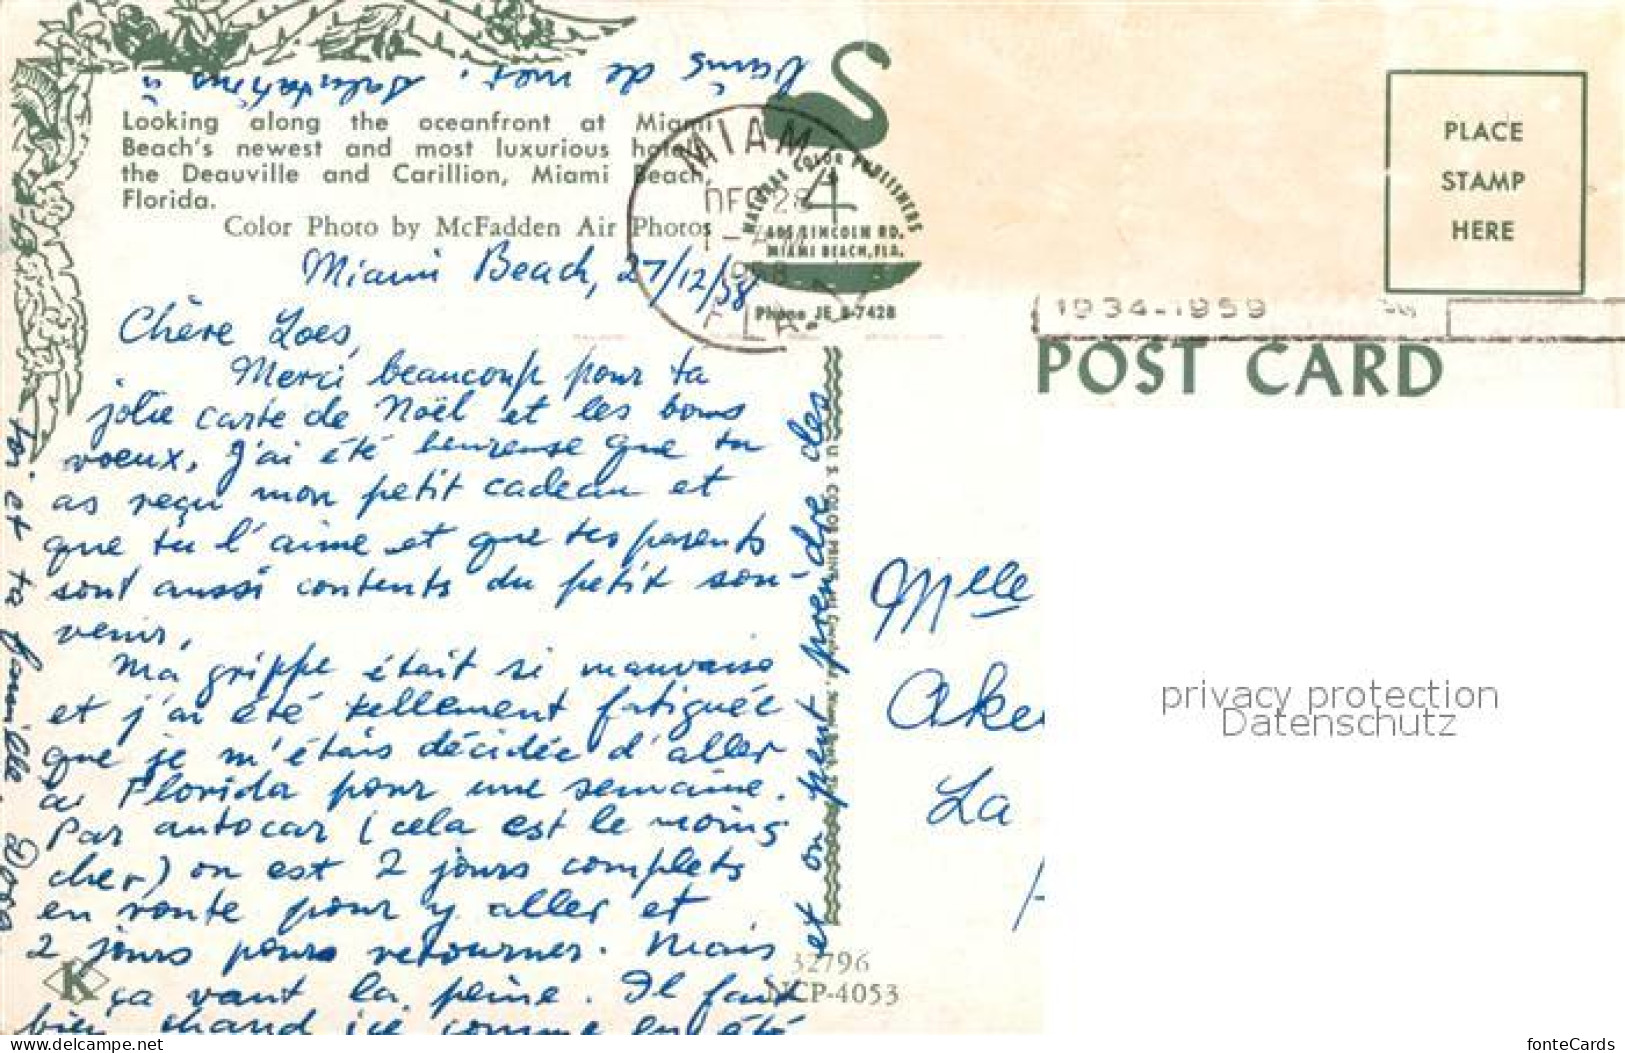 Looking along the oceanfront at Miami
Beach's newest and most luxurious hotels
the Deauville and Carillion, Miami Beach,
Florida.
Color Photo by McFadden Air Photos
MIAMI
DEC 28
1958
FLA.
NATURAL COLOR PUBLISHERS
405 LINCOLN RD.
MIAMI BEACH, FLA.
Phone JE 8-7428
PLACE
STAMP
HERE
1934-1959
POST CARD
Miami Beach, 27/12/58
Chère Loes,
Merci beaucoup pour ta
jolie carte de Noël et les bons
voeux. J'ai été heureuse que tu
as reçu mon petit cadeau et
que tu l'aime et que tes parents
sont aussi contents du petit sou-
venir.
Ma grippe était si mauvaise
et j'ai été tellement fatiguée
que je m'étais décidée d'aller
à Florida pour une semaine.
Par autocar (cela est le moins
cher) on est 2 jours complets
en route pour y aller et
2 jours pour retourner. Mais
ça vaut la peine. Il fait
bien chaud ici comme en été
et on peut prendre des
bains de mer. Salutations à
toi et ta famille. Dora
U. S. COLOR PRINT
32796
NCP-4053
K
Mlle
Ake
La
privacy protection
Datenschutz
www.delcampe.net
fonteCards